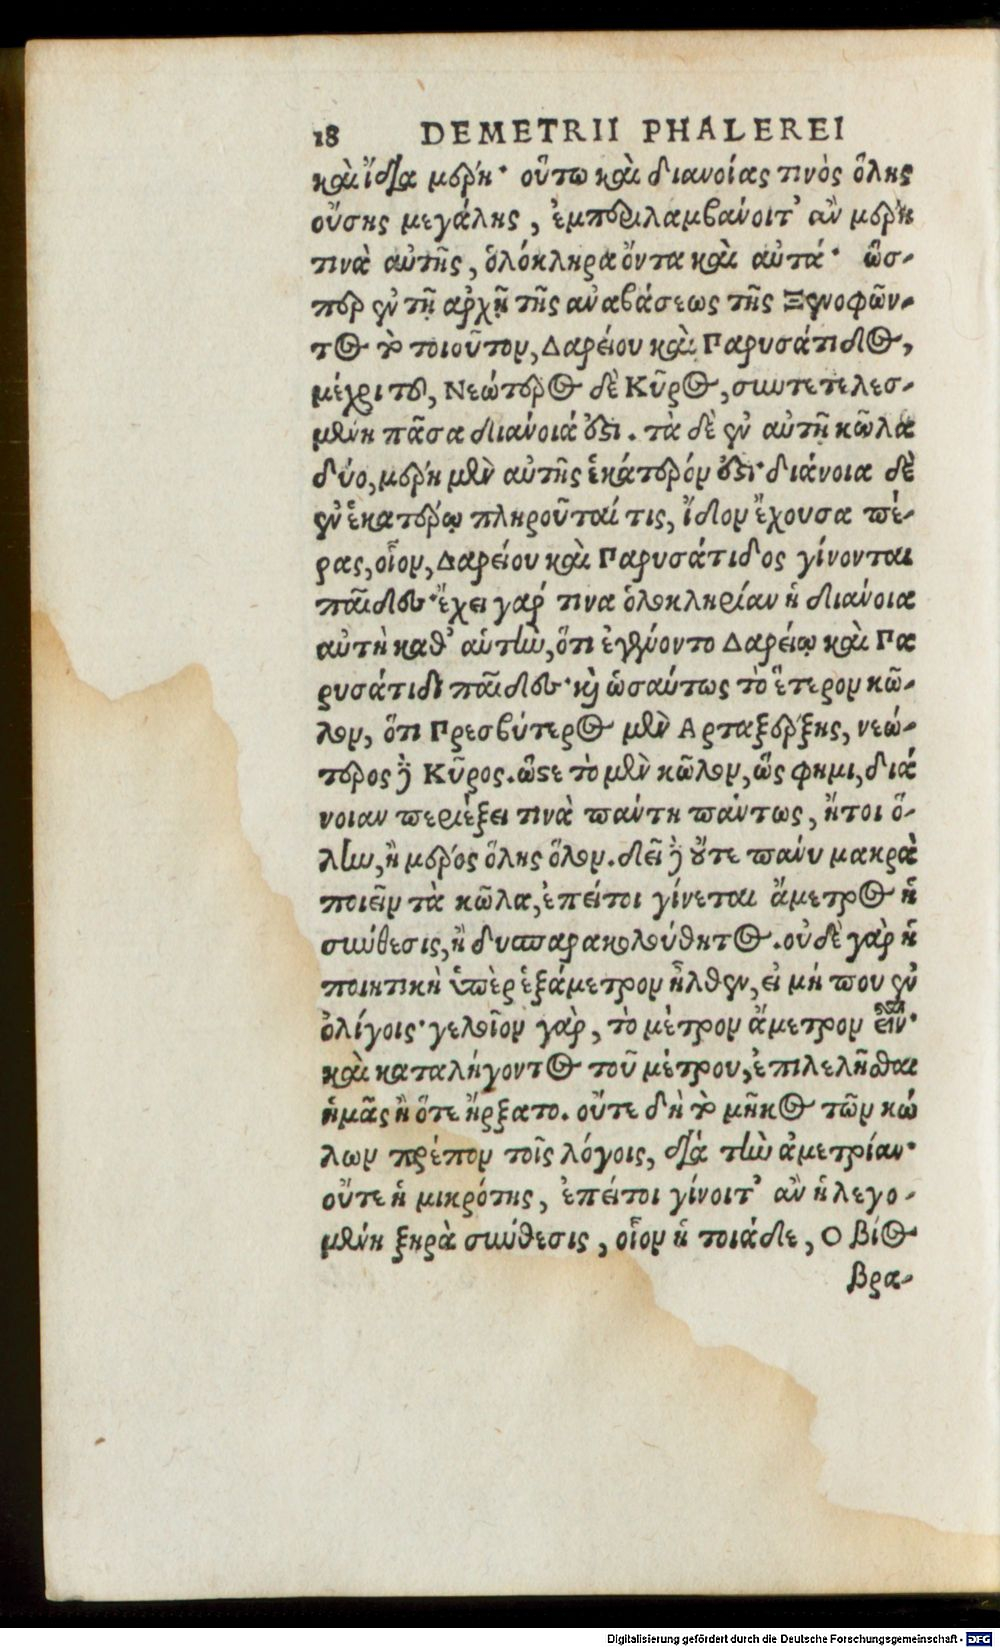 18 DEMETRII PHALEREI
καὶ ἴδια μέρη· οὕτω καὶ διανοίας τινὸς ὅλης
οὔσης μεγάλης, ἐμπεριλαμβάνοιτ' ἂν μέρη
τινὰ αὐτῆς, ὁλόκληρα ὄντα καὶ αὐτά· ὥσ-
περ ἐν τῇ ἀρχῇ τῆς ἀναβάσεως τῆς Ξενοφῶν-
τος τὸ τοιοῦτον, Δαρείου καὶ Παρυσάτιδος,
μέχρι τοῦ, Νεώτερος δὲ Κῦρος, συντετελεσ-
μένη πᾶσα διάνοιά ἐστι. τὰ δὲ ἐν αὐτῇ κῶλα
δύο, μέρη μὲν αὐτῆς ἑκάτερόν ἐστι· διάνοια δὲ
ἐν ἑκατέρῳ πληροῦταί τις, ἴδιον ἔχουσα πέ-
ρας, οἷον, Δαρείου καὶ Παρυσάτιδος γίνονται
παῖδες· ἔχει γάρ τινα ὁλοκληρίαν ἡ διάνοια
αὐτὴ καθ' αὑτὴν, ὅτι ἐγένοντο Δαρείῳ καὶ Πα
ρυσάτιδι παῖδες· καὶ ὡσαύτως τὸ ἕτερον κῶ-
λον, ὅτι Πρεσβύτερος μὲν Αρταξέρξης, νεώ-
τερος δὲ Κῦρος. ὥστε τὸ μὲν κῶλον, ὥς φημι, διά
νοιαν περιέξει τινὰ πάντη πάντως, ἤτοι ὅ-
λην, ἢ μέρος ὅλης ὅλον. δεῖ δὲ οὔτε πάνυ μακρὰ
ποιεῖν τὰ κῶλα, ἐπείτοι γίνεται ἄμετρος ἡ
σύνθεσις, ἢ δυσπαρακολούθητος. οὐδὲ γὰρ ἡ
ποιητικὴ ὑπὲρ ἑξάμετρον ἦλθεν, εἰ μή που ἐν
ὀλίγοις· γελοῖον γὰρ, τὸ μέτρον ἄμετρον εἶναι·
καὶ καταλήγοντος τοῦ μέτρου, ἐπιλελῆσθαι
ἡμᾶς ἢ ὅτε ἤρξατο. οὔτε δὴ τὸ μῆκος τῶν κώ
λων πρέπον τοῖς λόγοις, διὰ τὴν ἀμετρίαν·
οὔτε ἡ μικρότης, ἐπείτοι γίνοιτ' ἂν ἡ λεγο-
μένη ξηρὰ σύνθεσις, οἷον ἡ τοιάδε, Ο βίος
βρα-
Digitalisierung gefördert durch die Deutsche Forschungsgemeinschaft - DFG